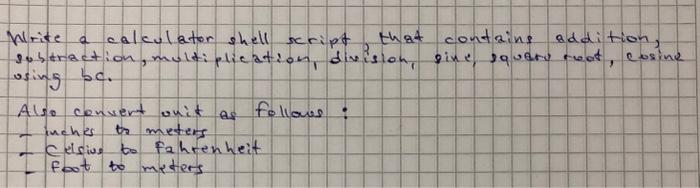 Write a calculator shell script, that contains addition,
subtraction, multiplication, division, sine, square root, cosine
using bc.
Also convert unit as follows :
- inches to meters
- Celsius to fahrenheit
- foot to meters